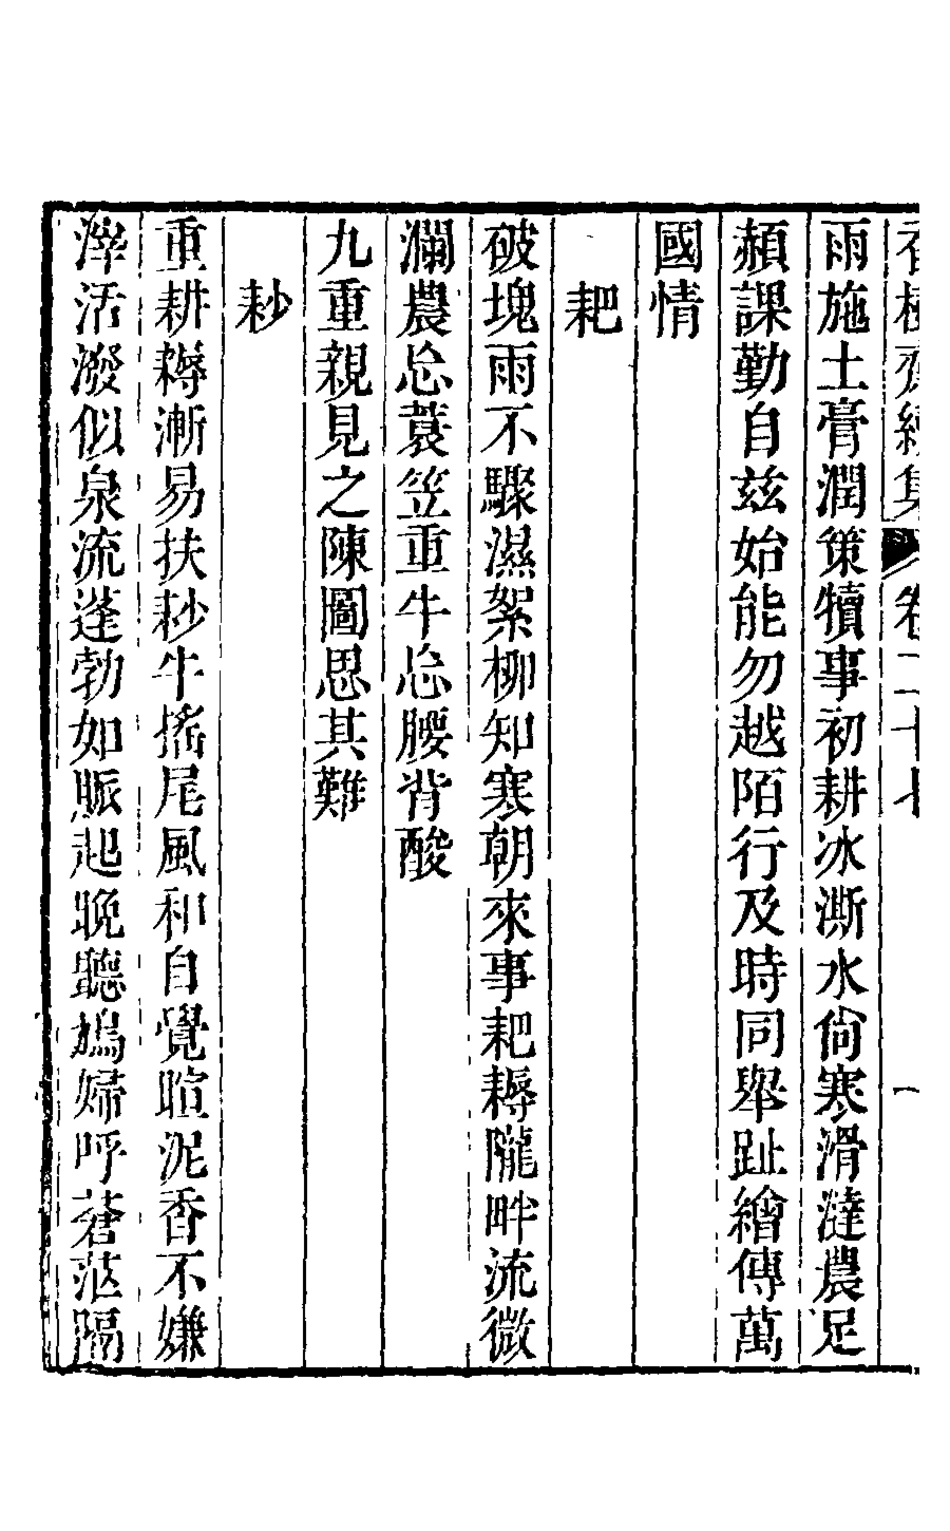 香樹齋續集 卷二十七 一
雨施土膏潤策犢事初耕冰澌水尙寒滑澾農足
頳課勤自茲始能勿越陌行及時同舉趾繪傳萬
國情
耙
破塊雨不驟濕絮柳知寒朝來事耙耨隴畔流微
瀾農忘蓑笠重牛忘腰背酸
九重親見之陳圖思其難
耖
重耕耨漸易扶耖牛搖尾風和自覺暄泥香不嫌
滓活潑似泉流蓬勃如脈起晚聽鳩婦呼蒼茫隔